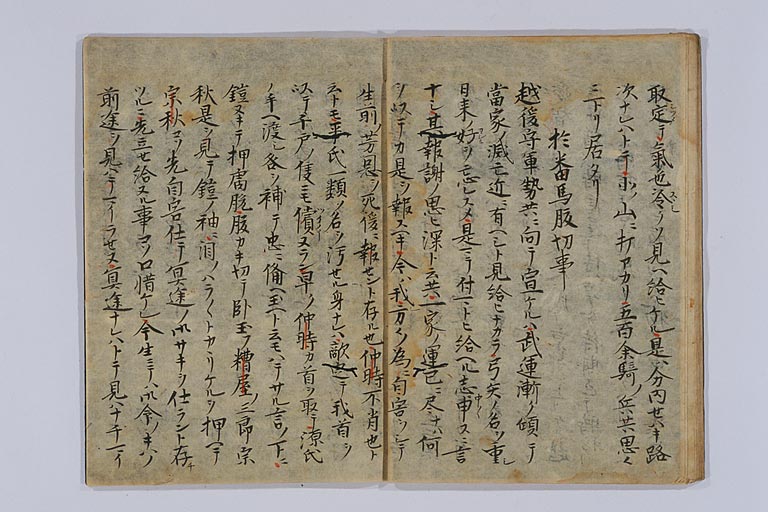 取定テ氣也冷クソ見ヘ給ヒケル是ハ分内セハキ路
次ナレハトテ小ノ山ニ打アカリ五百余騎ノ兵共思々
ニトリ居タリ
於番馬腹切事
越後守軍勢共ニ向テ宣ケルハ武運漸ク傾テ
當家ノ滅亡近ニ有ヘシト見給ヒナカラ弓矢ノ名ヲ重シ
日来ノ好ヲ忘レスメ是ニテ付ニトヒ給ヘル志申スニ言
ナシ其報謝ノ思ヒ深ト云共一家ノ運已ニ尽ナハ何
ヲ以テカ是ヲ報スヘキ今ハ我方々ノ為ニ自害ヲシテ
生前ノ芳恩ヲ死後ニ報セント存ル也仲時不肖也ト
云トモ平氏一類ノ名ヲ汚セル身ナレハ敵共定テ我首ヲ
以テ千戸ノ侯ニモ償ヌラン早ク仲時カ首ヲ取テ源氏
ノ手ヘ渡シ各ヲ補テ忠ニ備ヘ玉ヘト云モハテサル言ノ下ニ
鎧ヌキテ押膚脱腹カキ切テ卧玉フ糟屋ノ三郎宗
秋是ヲ見テ鎧ノ袖ニ涙ノハラハラトカヽリケルヲ押ヘテ
宗秋コソ先自害仕テ冥途ノ御サキヲ仕ラント存
ツルニ先立セ給ヌル事コソ口惜ケレ今生ニテハ御命ノキハノ
前途ヲ見ハテマイラセヌ冥途ナレハトテ見ハナチマイ